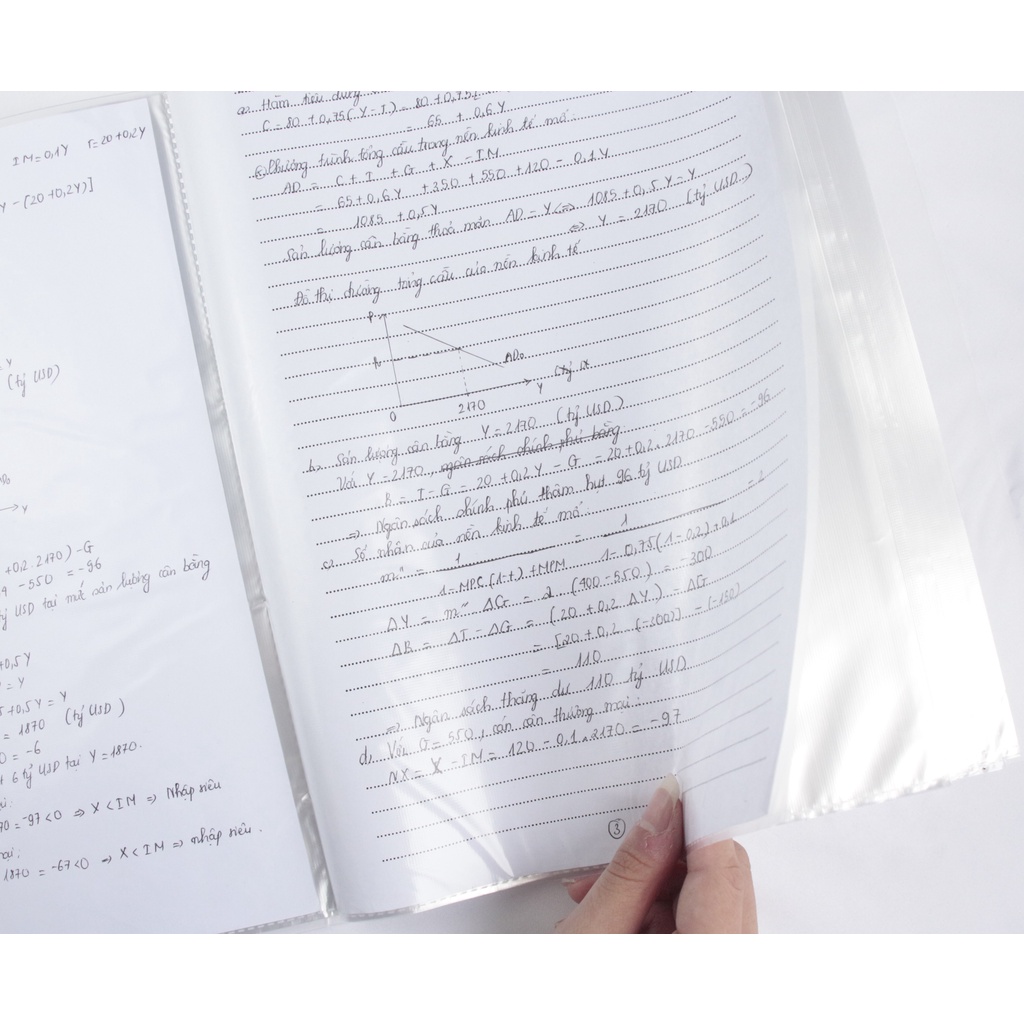 IM=0,1Y T=20+0,2Y
Y-(20+0,2Y)]
(tỷ USD)
Y
+0,2.2170)-G
-550 = -96
tỷ USD tại mức sản lượng cân bằng
+0,5Y
= Y
5+0,5Y = Y
= 1870 (tỷ USD)
0 = -6
6 tỷ USD tại Y=1870.
70 = -97<0 => X<IM => Nhập siêu
1870 = -67<0 => X<IM => nhập siêu.
a, Hàm tiêu dùng
C = 80 + 0,75(Y-T) = 80 + 0,75
= 65 + 0,6Y
Phương trình tổng cầu trong nền kinh tế mở
AD = C + I + G + X - IM
= 65 + 0,6Y + 350 + 550 + 120 - 0,1Y
= 1085 + 0,5Y
Sản lượng cân bằng thoả mãn AD = Y <=> 1085 + 0,5Y = Y
<=> Y = 2170 (tỷ USD)
Đồ thị đường tổng cầu của nền kinh tế
P
AD₀
0 2170 Y (tỷ
b, Sản lượng cân bằng Y = 2170 (tỷ USD)
Với Y = 2170, ngân sách chính phủ bằng
B = T - G = 20 + 0,2.Y - G = 20 + 0,2.2170 - 550 = -96
=> Ngân sách chính phủ thâm hụt 96 tỷ USD
c, Số nhân của nền kinh tế mở
m" = 1 = 1 = 2
1-MPC(1-t)+MPM 1-0,75(1-0,2)+0,1
ΔY = m".ΔG = 2.(400-550) = -300
ΔB = ΔT - ΔG = (20 + 0,2.ΔY) - ΔG
= [20 + 0,2.(-300)] - (-150)
= 110
=> Ngân sách thặng dư 110 tỷ USD
d, Với G = 550, cán cân thương mại:
NX = X - IM = 120 - 0,1.2170 = -97
3